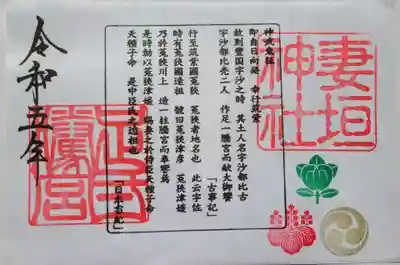 妻垣
神社
神武東征
即自日向發 幸行筑紫
故到豊国宇沙之時 其土人名宇沙都比古
宇沙都比売二人 作足一騰宮而献大御饗
「古事記」
行至筑紫國菟狭 菟狭者地名也 此云宇佐
時有菟狭國造祖 號曰菟狭津彦 菟狭津媛
乃於菟狭川上 造一柱騰宮而奉饗焉
是時勅以菟狭津媛 賜妻之於侍臣天種子命
天種子命 是中臣氏之遠祖也
「日本書紀」
足一
騰宮
令和五年